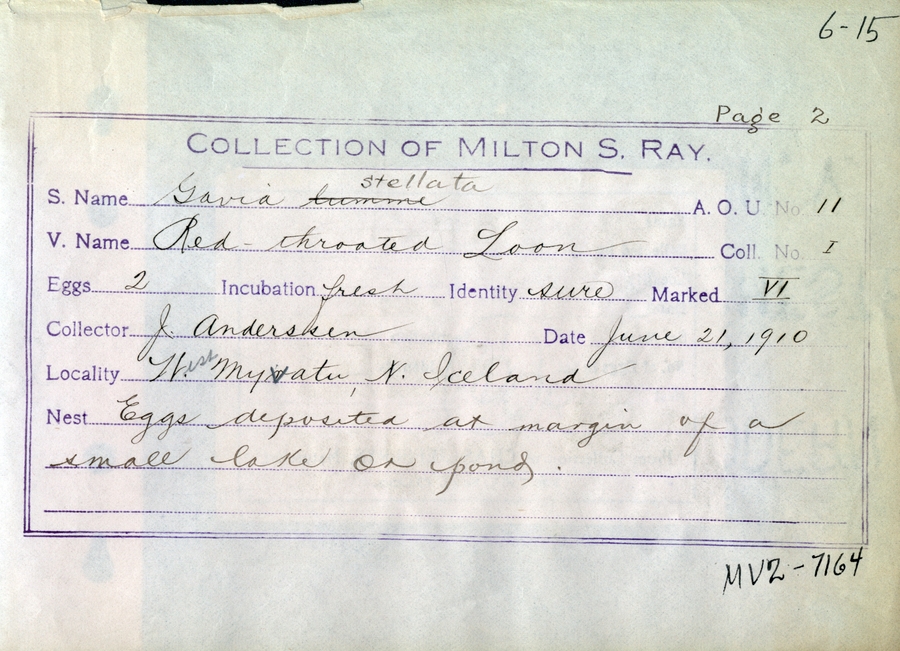 6-15
Page 2
COLLECTION OF MILTON S. RAY.
stellata
S. Name Gavia lumme A. O. U. No. 11
V. Name Red-throated Loon Coll. No. I
Eggs 2 Incubation fresh Identity sure Marked VI
Collector J. Anderssen Date June 21, 1910
Locality West Myvatu, N. Iceland
Nest Eggs deposited at margin of a
small lake or pond.
MVZ-7164